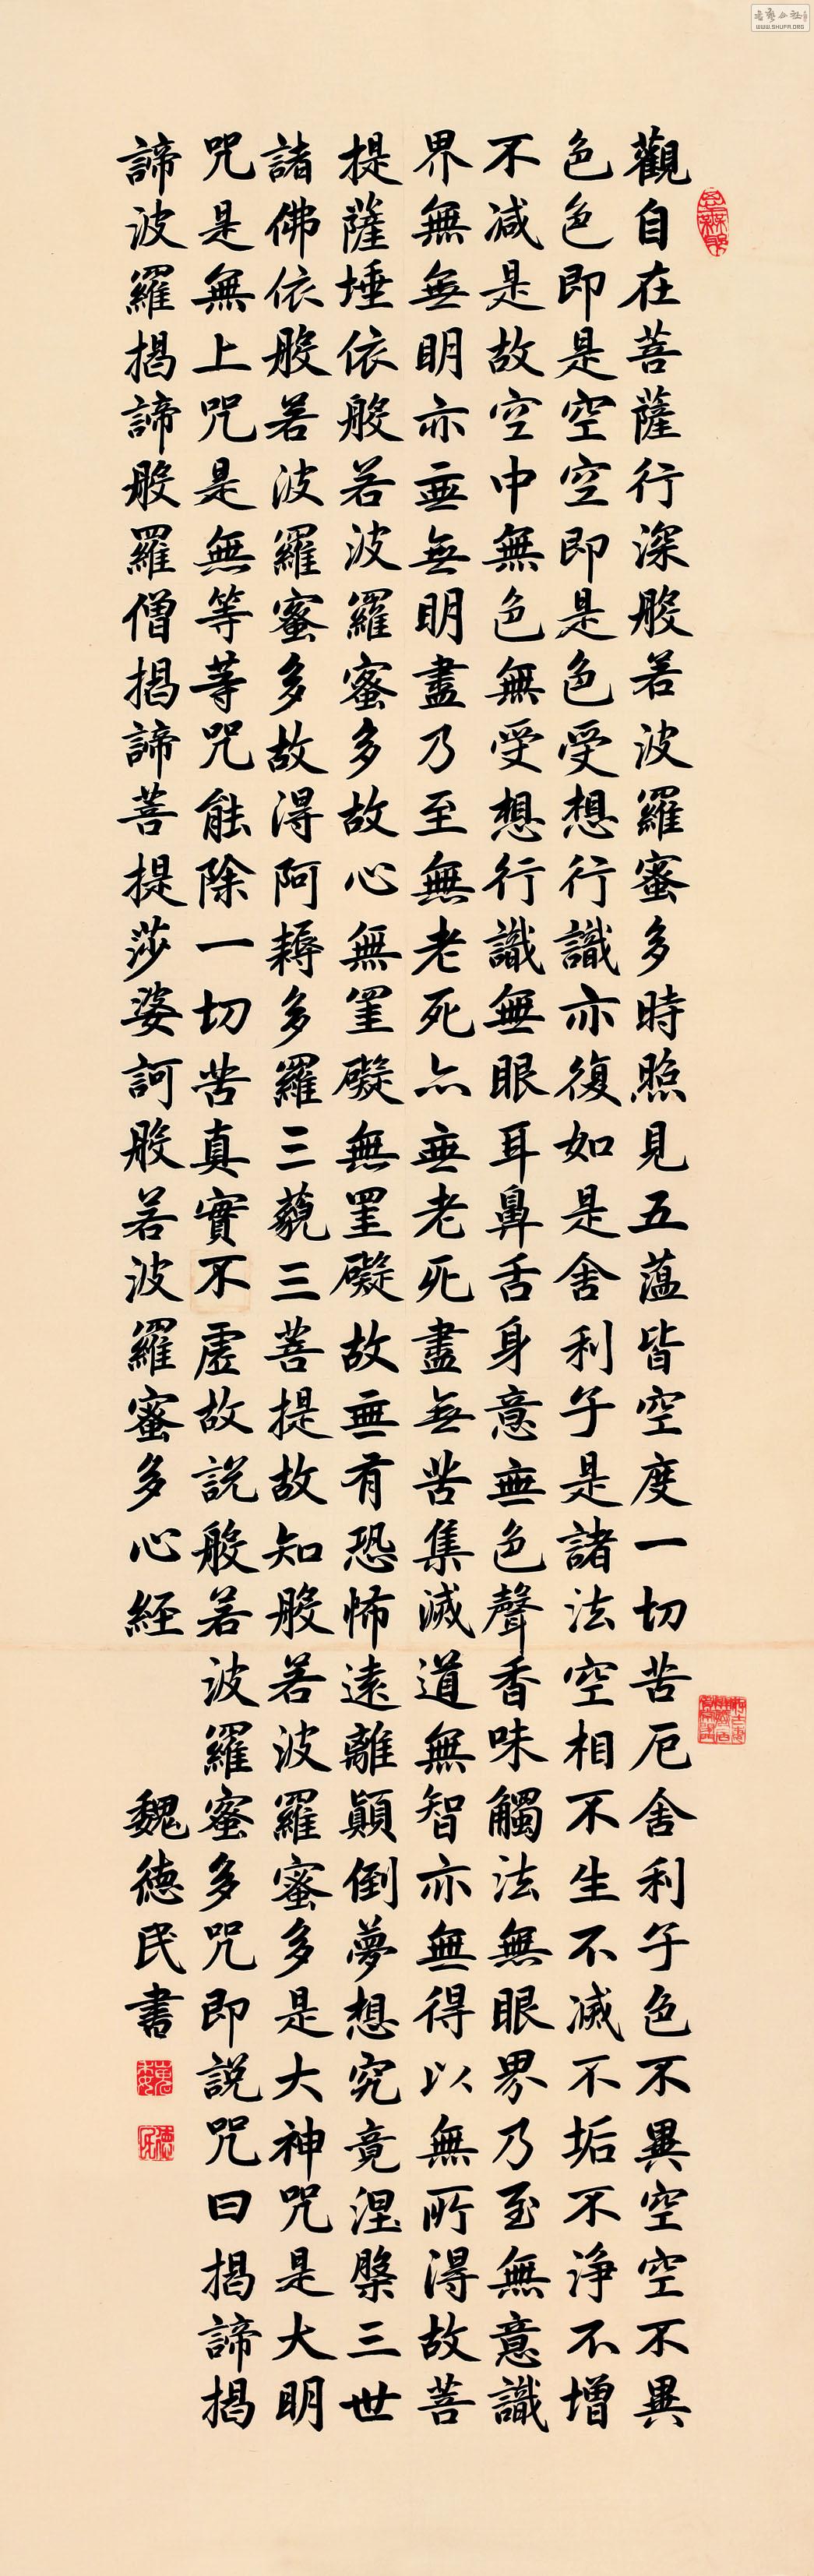 觀自在菩薩行深般若波羅蜜多時照見五蕰皆空度一切苦厄舍利子色不異空空不異
色色即是空空即是色受想行識亦復如是舍利子是諸法空相不生不滅不垢不淨不增
不減是故空中無色無受想行識無眼耳鼻舌身意無色聲香味觸法無眼界乃至無意識
界無無明亦無無明盡乃至無老死亦無老死盡無苦集滅道無智亦無得以無所得故菩
提薩埵依般若波羅蜜多故心無罣礙無罣礙故無有恐怖遠離顛倒夢想究竟涅槃三世
諸佛依般若波羅蜜多故得阿耨多羅三藐三菩提故知般若波羅蜜多是大神咒是大明
咒是無上咒是無等等咒能除一切苦真實不虛故說般若波羅蜜多咒即說咒曰揭諦揭
諦波羅揭諦般羅僧揭諦菩提莎婆訶般若波羅蜜多心經
魏德民書
WWW.SHUFA.ORG